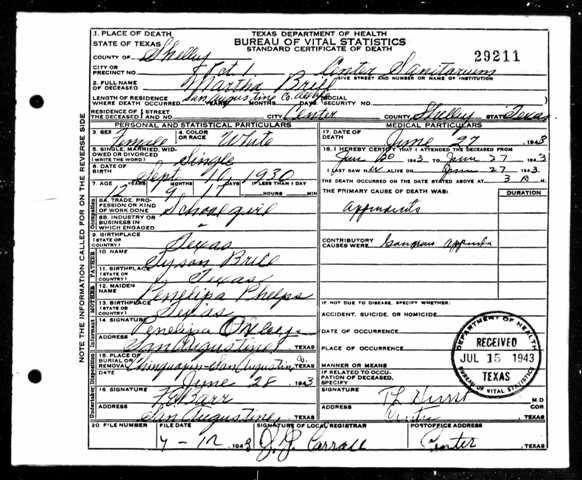 TEXAS DEPARTMENT OF HEALTH
BUREAU OF VITAL STATISTICS
STANDARD CERTIFICATE OF DEATH
29211
1. PLACE OF DEATH
STATE OF TEXAS
COUNTY OF Shelby
CITY OR PRECINCT NO. Pct. 1 Center Sanitarium
GIVE STREET AND NUMBER OR NAME OF INSTITUTION
2. FULL NAME OF DECEASED Martha Brill
LENGTH OF RESIDENCE WHERE DEATH OCCURRED San Augustine Co. YEARS MONTHS DAYS SOCIAL SECURITY NO.
RESIDENCE OF THE DECEASED STREET AND NO. CITY Center COUNTY Shelby STATE Texas
PERSONAL AND STATISTICAL PARTICULARS
3. SEX Female 4. COLOR OR RACE White
5. SINGLE, MARRIED, WIDOWED OR DIVORCED (WRITE THE WORD) Single
6. DATE OF BIRTH Sept 10, 1930
7. AGE YEARS MONTHS DAYS IF LESS THAN 1 DAY
12 9 17 HOURS MIN
8A. TRADE, PROFESSION OR KIND OF WORK DONE School girl
8B. INDUSTRY OR BUSINESS IN WHICH ENGAGED
9. BIRTHPLACE (STATE OR COUNTRY) Texas
10. NAME Tyson Brill
11. BIRTHPLACE (STATE OR COUNTRY) Texas
12. MAIDEN NAME Penelipa Phelps
13. BIRTHPLACE (STATE OR COUNTRY) Texas
14. SIGNATURE Penelipa
ADDRESS San Augustine TEXAS
15. PLACE OF BURIAL OR REMOVAL Chinquapin-San Augustine Co.
DATE June 28 1943
16. SIGNATURE
ADDRESS San Augustine, TEXAS
MEDICAL PARTICULARS
17. DATE OF DEATH June 27 1943
18. I HEREBY CERTIFY THAT I ATTENDED THE DECEASED FROM
June 20 1943 TO June 27 1943
I LAST SAW ALIVE ON June 27 1943
THE DEATH OCCURRED ON THE DATE STATED ABOVE AT 3 A. M.
THE PRIMARY CAUSE OF DEATH WAS: DURATION
Appendicitis
CONTRIBUTORY CAUSES WERE:
IF NOT DUE TO DISEASE, SPECIFY WHETHER:
ACCIDENT, SUICIDE, OR HOMICIDE
DATE OF OCCURRENCE
PLACE OF OCCURRENCE
MANNER OR MEANS
IF RELATED TO OCCUPATION OF DECEASED, SPECIFY
SIGNATURE M.D. COR
ADDRESS Center TEXAS
20. FILE NUMBER FILE DATE 7-12 1943
SIGNATURE OF LOCAL REGISTRAR J. J. Carroll
POSTOFFICE ADDRESS Center, TEXAS
DEPARTMENT OF HEALTH
RECEIVED
JUL 15 1943
TEXAS
BUREAU OF VITAL STATISTICS
NOTE THE INFORMATION CALLED FOR ON THE REVERSE SIDE
Occupation
FATHER
MOTHER
Informant
Undertaker Disposition